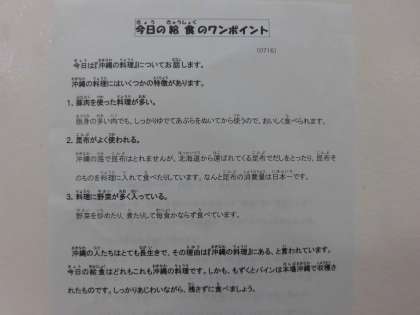 今日の給食のワンポイント
(0716)
今日は『沖縄の料理』についてお話します。
沖縄の料理にはいくつかの特徴があります。
1. 豚肉を使った料理が多い。
脂身の多い肉でも、しっかりゆでてあぶらをぬいてから使うので、おいしく食べられます。
2. 昆布がよく使われる。
沖縄の海で昆布はとれませんが、北海道から運ばれてくる昆布でだしをとったり、昆布そ
のものを料理に入れて食べたりしています。なんと昆布の消費量は日本一です。
3. 料理に野菜が多く入っている。
野菜を炒めたり、煮たりして毎食かならず食べています。
沖縄の人たちはとても長生きで、その理由は『沖縄の料理』にある、と言われています。
今日の給食はどれもこれも沖縄の料理です。しかも、もずくとパインは本場沖縄で収穫さ
れたものです。しっかりあじわいながら、残さずに食べましょう。